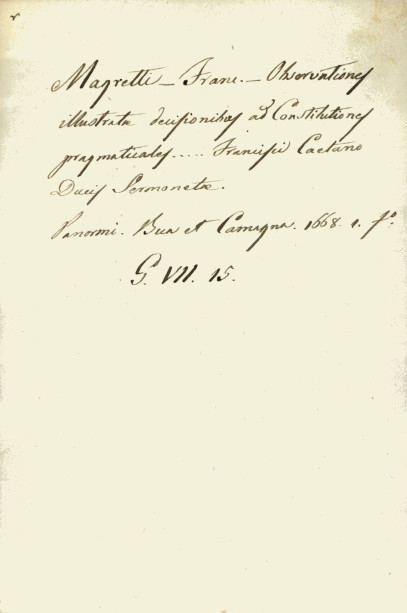 Magretti _ Franc. _ Observationes
illustratæ decisionibus ad Constitutiones
pragmaticales ..... Francisci Caetano
Ducis Sermonetæ.
Panormi. Bua et Camagna. 1668. 1. fº.
G. VII. 15.